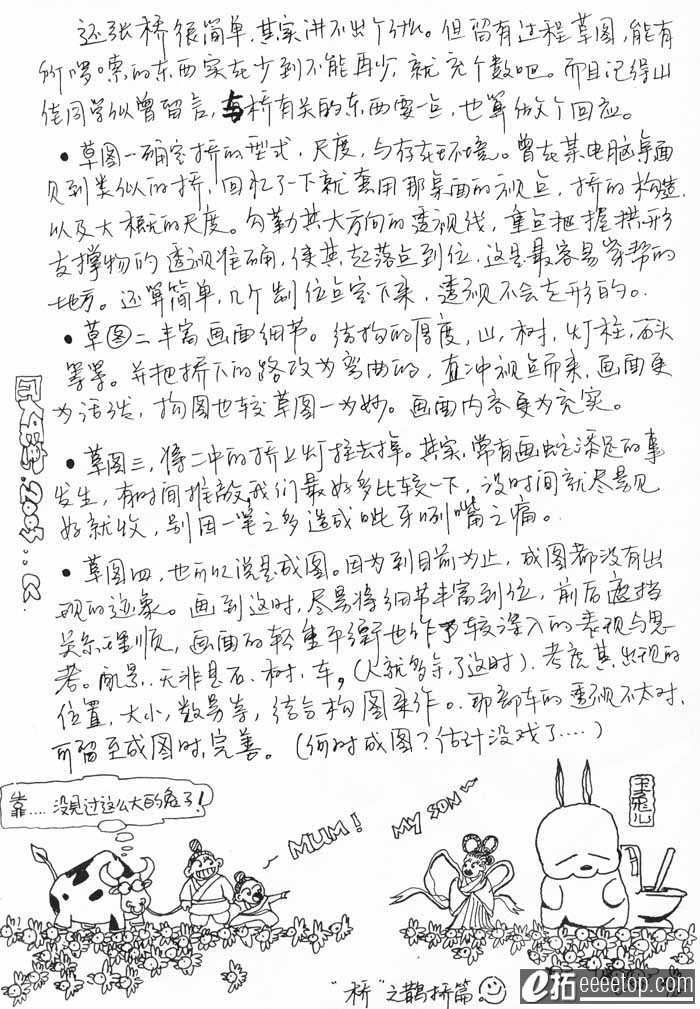 这张桥很简单,其实讲不出个什么。但留有过程草图,能有
所啰嗦的东西实在少到不能再少,就充个数吧。而且记得山
佳同学似曾留言,与桥有关的东西要一点,也算做个回应。
• 草图一确定桥的型式,尺度,与存在环境。曾在某电脑桌面
见到类似的桥,回忆了一下就套用那桌面的视点,桥的构造
以及大概的尺度。勾勒其大方向的透视线,重点把握拱形
支撑物的透视准确,使其起落点到位,这是最容易穿帮的
地方。还算简单,几个制位点定下来,透视不会走形的。
• 草图二丰富画面细节。结构的厚度,山,树,灯柱,石头
等等。并把桥下的路改为弯曲的,直冲视点而来,画面更
为活泼,构图也较草图一为妙。画面内容更为充实。
• 草图三,将二中的桥上灯柱去掉。其实,常有画蛇添足的事
发生,有时间推敲,我们最好多比较一下,没时间就尽量见
好就收,别因一笔之多造成呲牙咧嘴之痛。
• 草图四,也可以说是成图。因为到目前为止,成图都没有出
现的迹象。画到这时,尽量将细节丰富到位,前后遮挡
关系理顺,画面的轻重平衡也作了较深入的表现与思
考。配景,无非是石、树、车,(人就省了这时)。考虑其出现的
位置,大小,数量等,结合构图来作。那部车的透视不大对,
可留至成图时,完善。(何时成图?估计没戏了....)
2003
靠....没见过这么大的兔子!
MUM!
MY SON~
玉兔
"桥"之鹊桥篇。
e拓 eeeetop.com